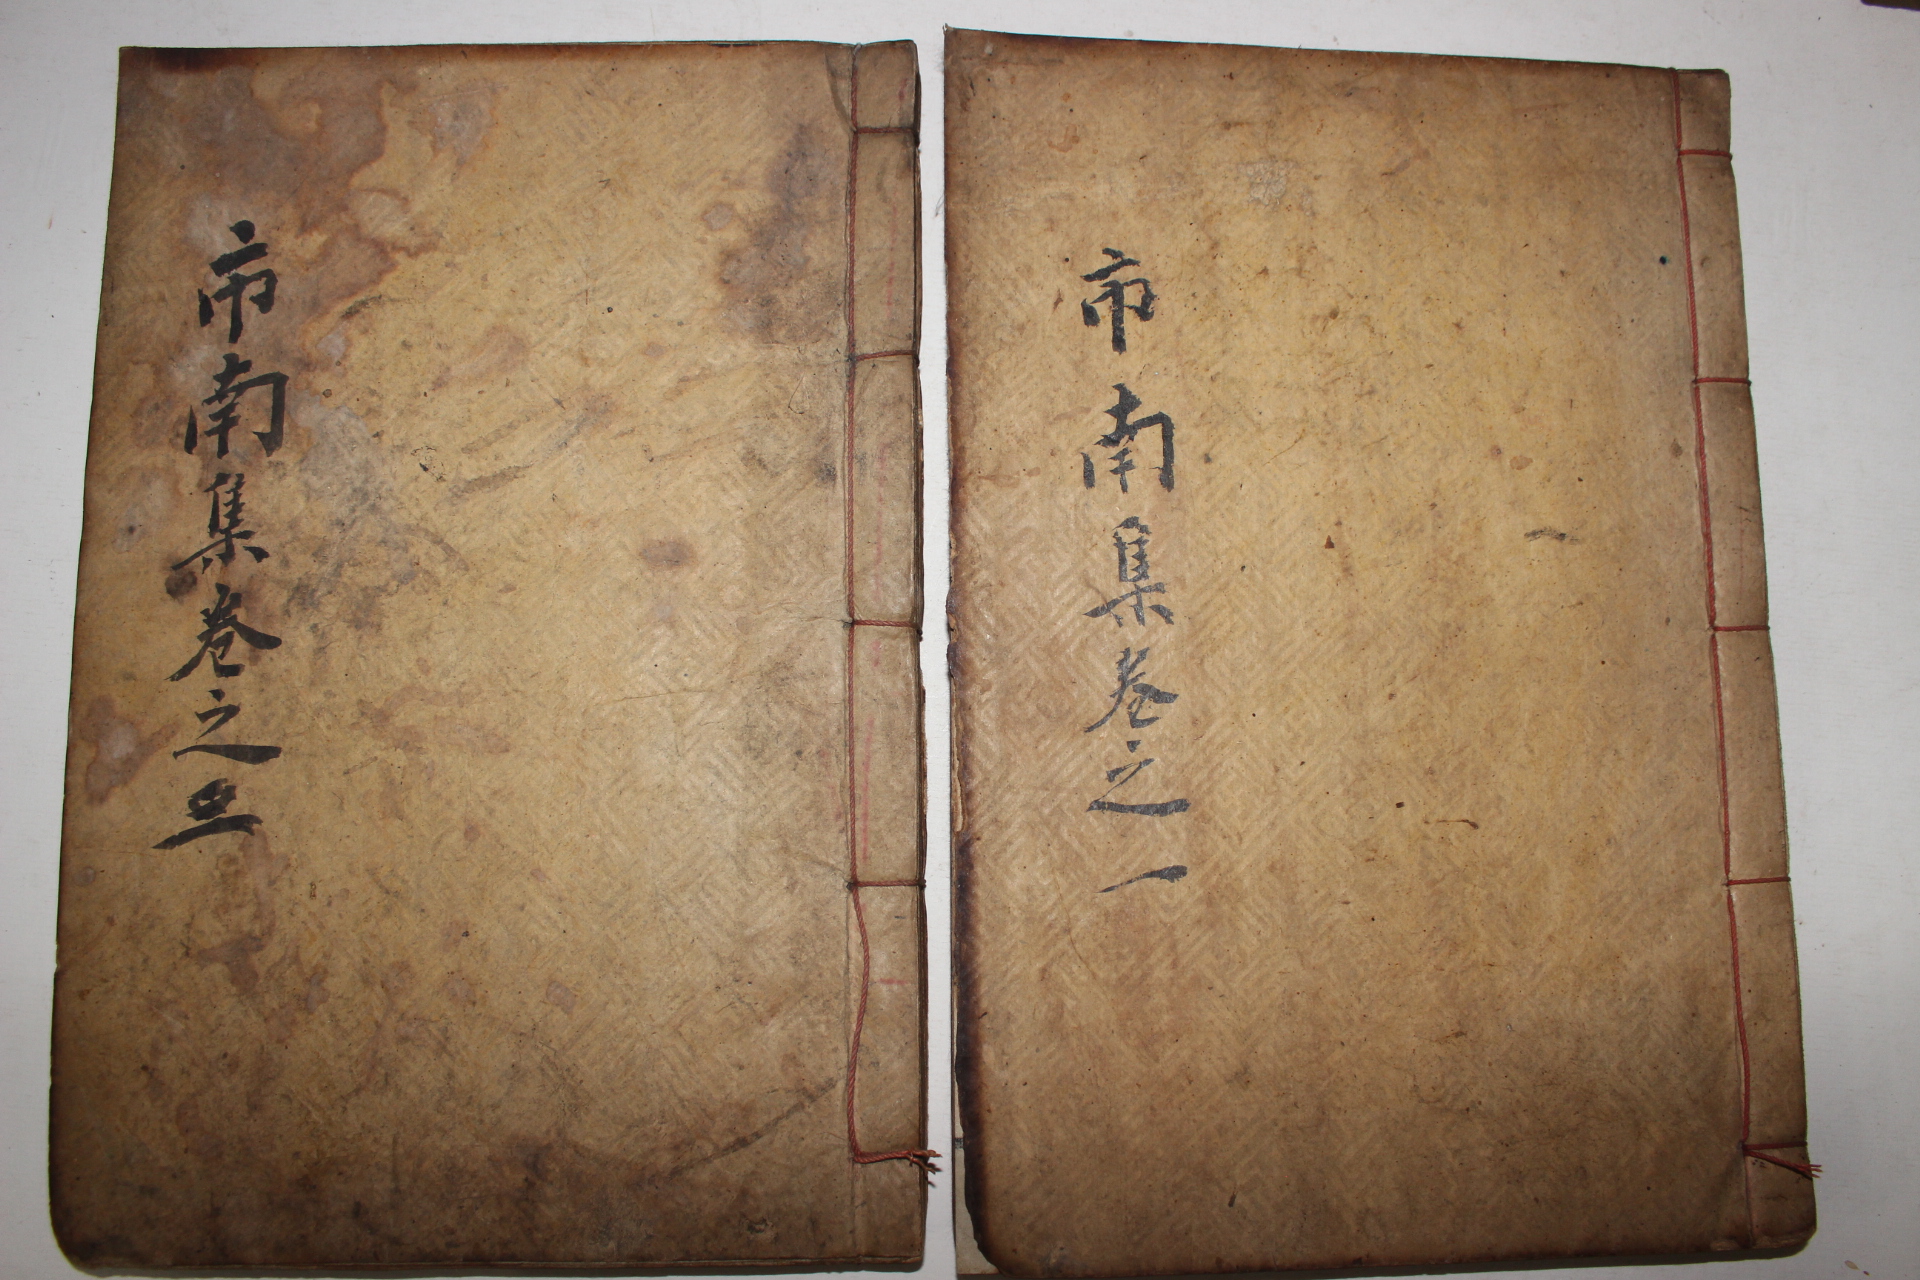 市南集卷之一
市南集卷之三